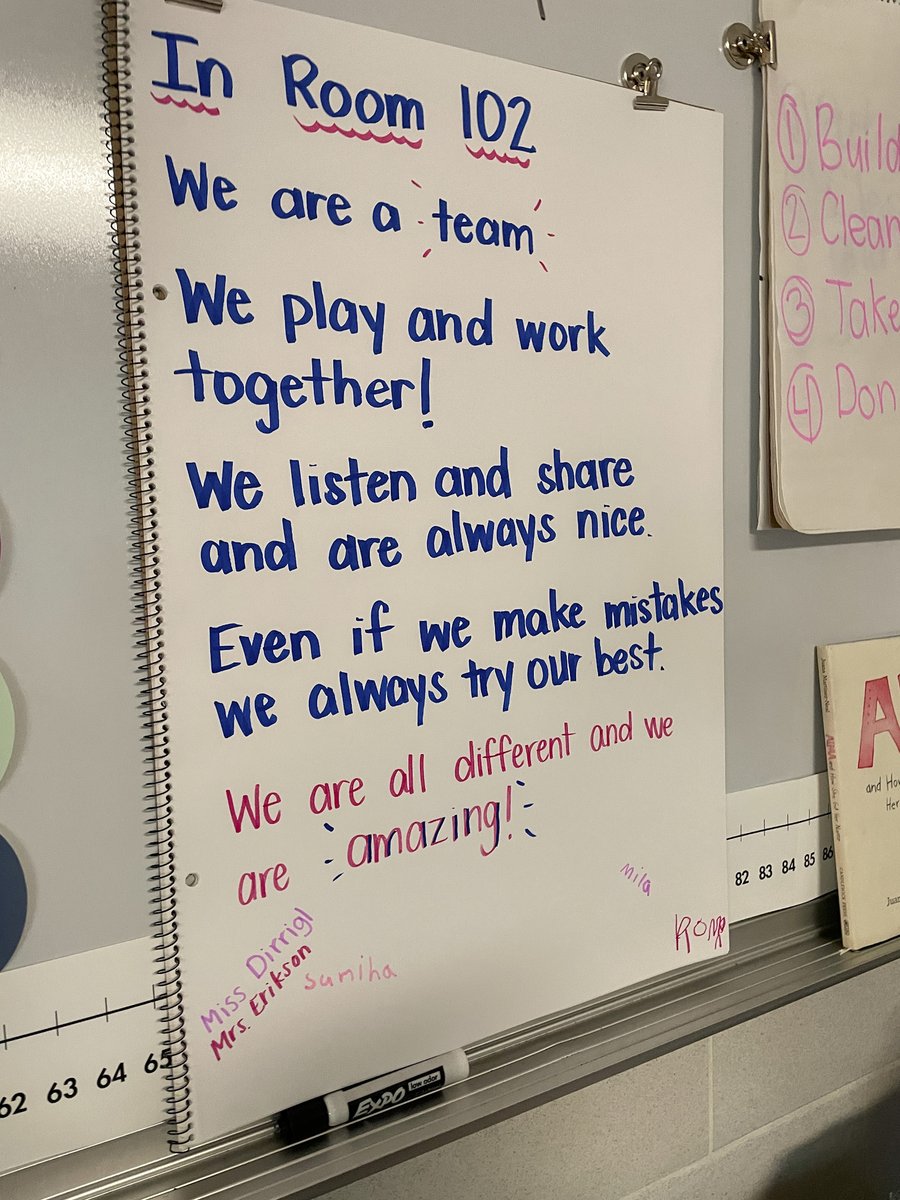 In Room 102
We are a team
We play and work
together!
We listen and share
and are always nice.
Even if we make mistakes
we always try our best.
We are all different and we
are amazing!
Mila
Miss Dirrigl
Mrs. Erikson
Samiha
① Build
② Clean
③ Take
④ Don
62 63 64 65
82 83 84 85 86
EXPO low odor
and How
Her
Juan